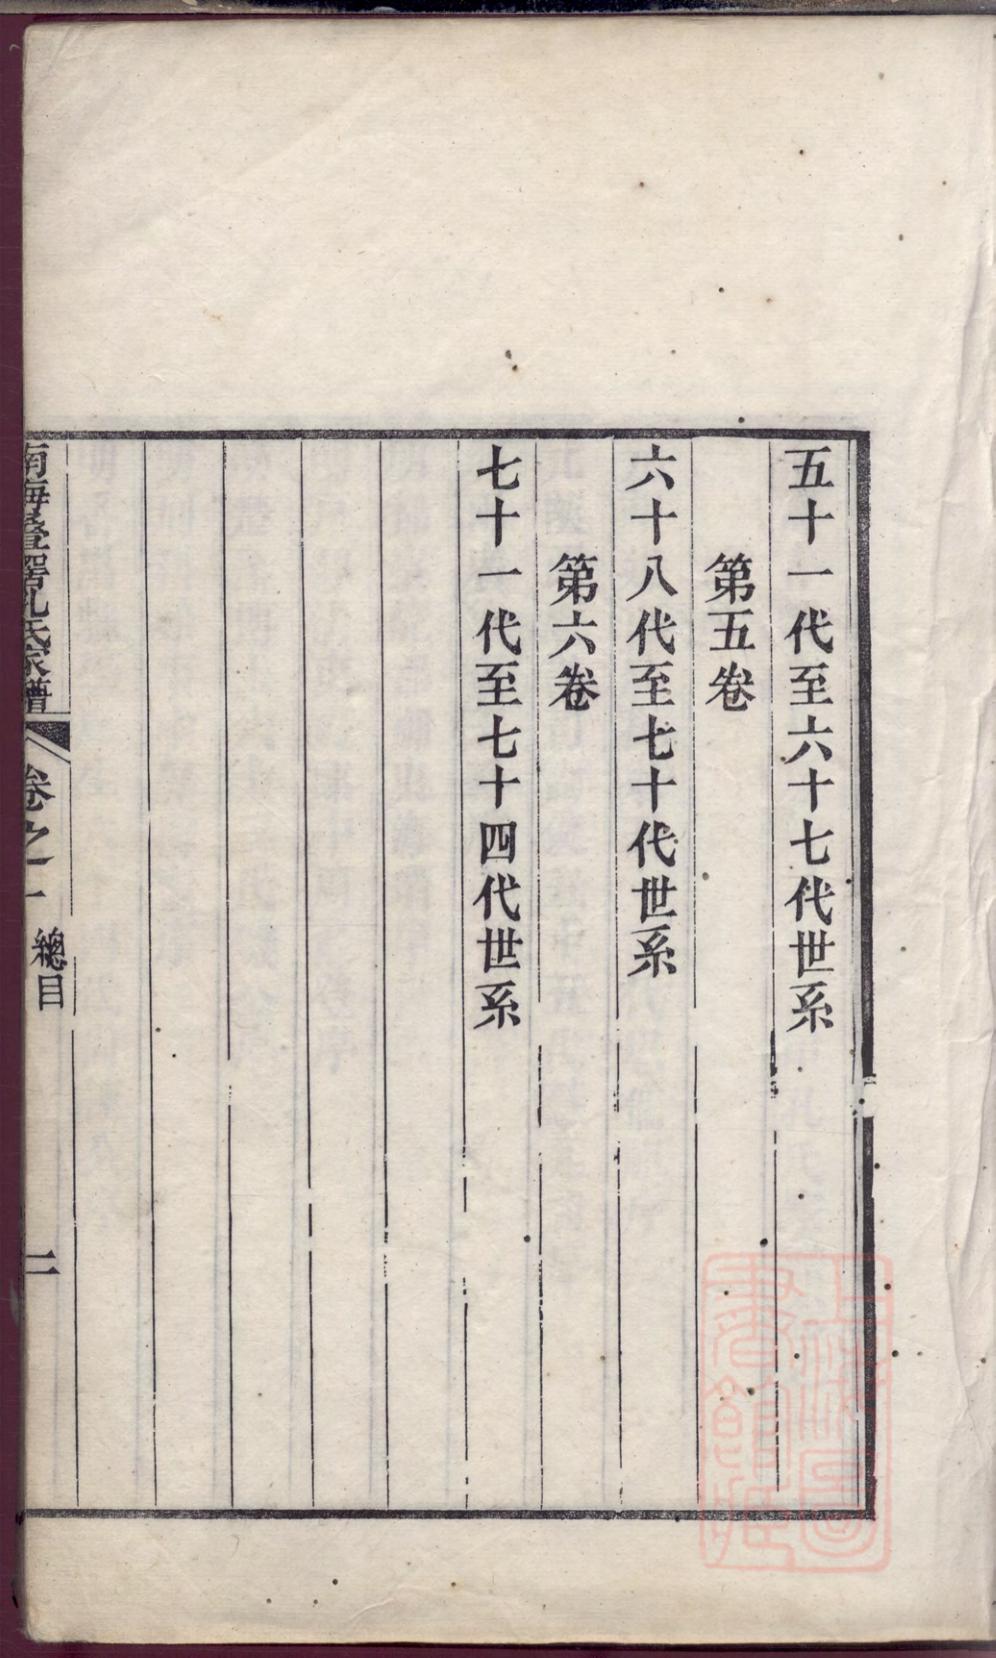 五十一代至六十七代世系
第五卷
六十八代至七十代世系
第六卷
七十一代至七十四代世系
南海疊滘孔氏家譜
卷之一
總目
二
上海圖書館藏